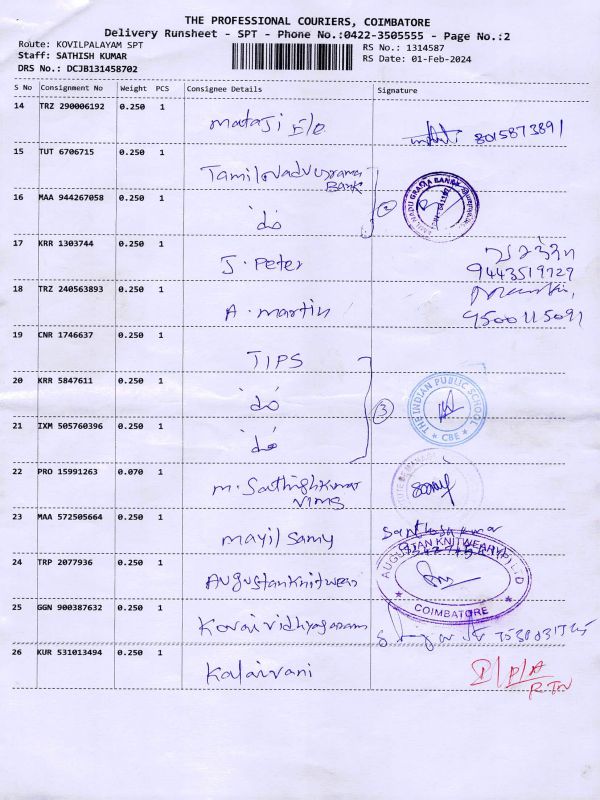 THE PROFESSIONAL COURIERS, COIMBATORE
Delivery Runsheet - SPT - Phone No.:0422-3505555 - Page No.:2
Route: KOVILPALAYAM SPT
Staff: SATHISH KUMAR
DRS No.: DCJB131458702
RS No.: 1314587
RS Date: 01-Feb-2024
S No Consignment No Weight PCS Consignee Details Signature
14 TRZ 290006192 0.250 1
Mataji E/O 8015873891
15 TUT 6706715 0.250 1
Tamilnadu grama
BANK
16 MAA 944267058 0.250 1
do
TAMIL NADU GRAMA BANK
17 KRR 1303744 0.250 1
J. Peter
9443519727
18 TRZ 240563893 0.250 1
A. martin
9500115091
19 CNR 1746637 0.250 1
TIPS
20 KRR 5847611 0.250 1
do
3
THE INDIAN PUBLIC SCHOOL
CBE
21 IXM 505760396 0.250 1
do
22 PRO 15991263 0.070 1
M. Sathishkumar
VIMS
23 MAA 572505664 0.250 1
Mayil Samy
Santhosh kumar
24 TRP 2077936 0.250 1
Augustan knitwear
AUGUSTAN KNITWEAR P LTD
COIMBATORE
25 GGN 900387632 0.250 1
Kovai vidhyasaram
26 KUR 531013494 0.250 1
Kalaivani
D/P/A
RTN